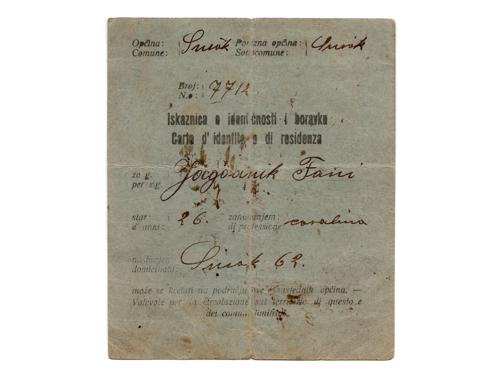 Općina: Sušak Porezna općina: Sušak
Comune: Sottocomune:
Broj: 77/2
N.o:
Iskaznica o identičnosti i boravku
Carta d'identita e di residenza
za g. Jagodnik Fani
per sig.
star: 26. zanimanjem: casalina
d'anni: di professione
nastanjen Sušak 62.
domiciliati
može se kretati na području ove i susjednih općina. —
Valevole per la circolazione sul territorio di questo e
dei comuni limitrofi.